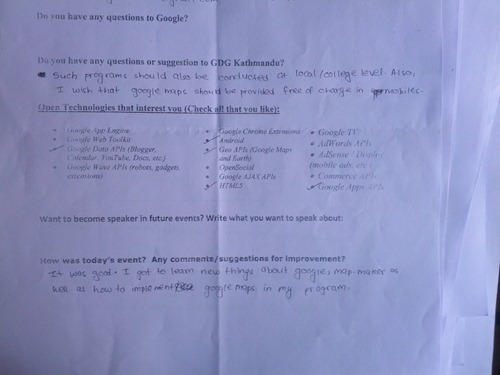 Do you have any questions to Google?
Do you have any questions or suggestion to GDG Kathmandu?
Such programs should also be conducted at local/college level. Also,
I wish that google maps should be provided free of charge in mobiles.
Open Technologies that interest you (Check all that you like):
Google App Engine
Google Web Toolkit
Google Data APIs (Blogger,
Calendar, YouTube, Docs, etc.)
Google Wave APIs (robots, gadgets,
extensions)
Google Chrome Extensions
Android
Geo APIs (Google Maps
and Earth)
OpenSocial
Google AJAX APIs
HTML5
Google TV
AdWords APIs
AdSense / Display
(mobile ads, etc.)
Commerce APIs
Google Apps APIs
Want to become speaker in future events? Write what you want to speak about:
How was today's event? Any comments/suggestions for improvement?
It was good. I got to learn new things about google, map-maker as
well as how to implement google maps in my program.